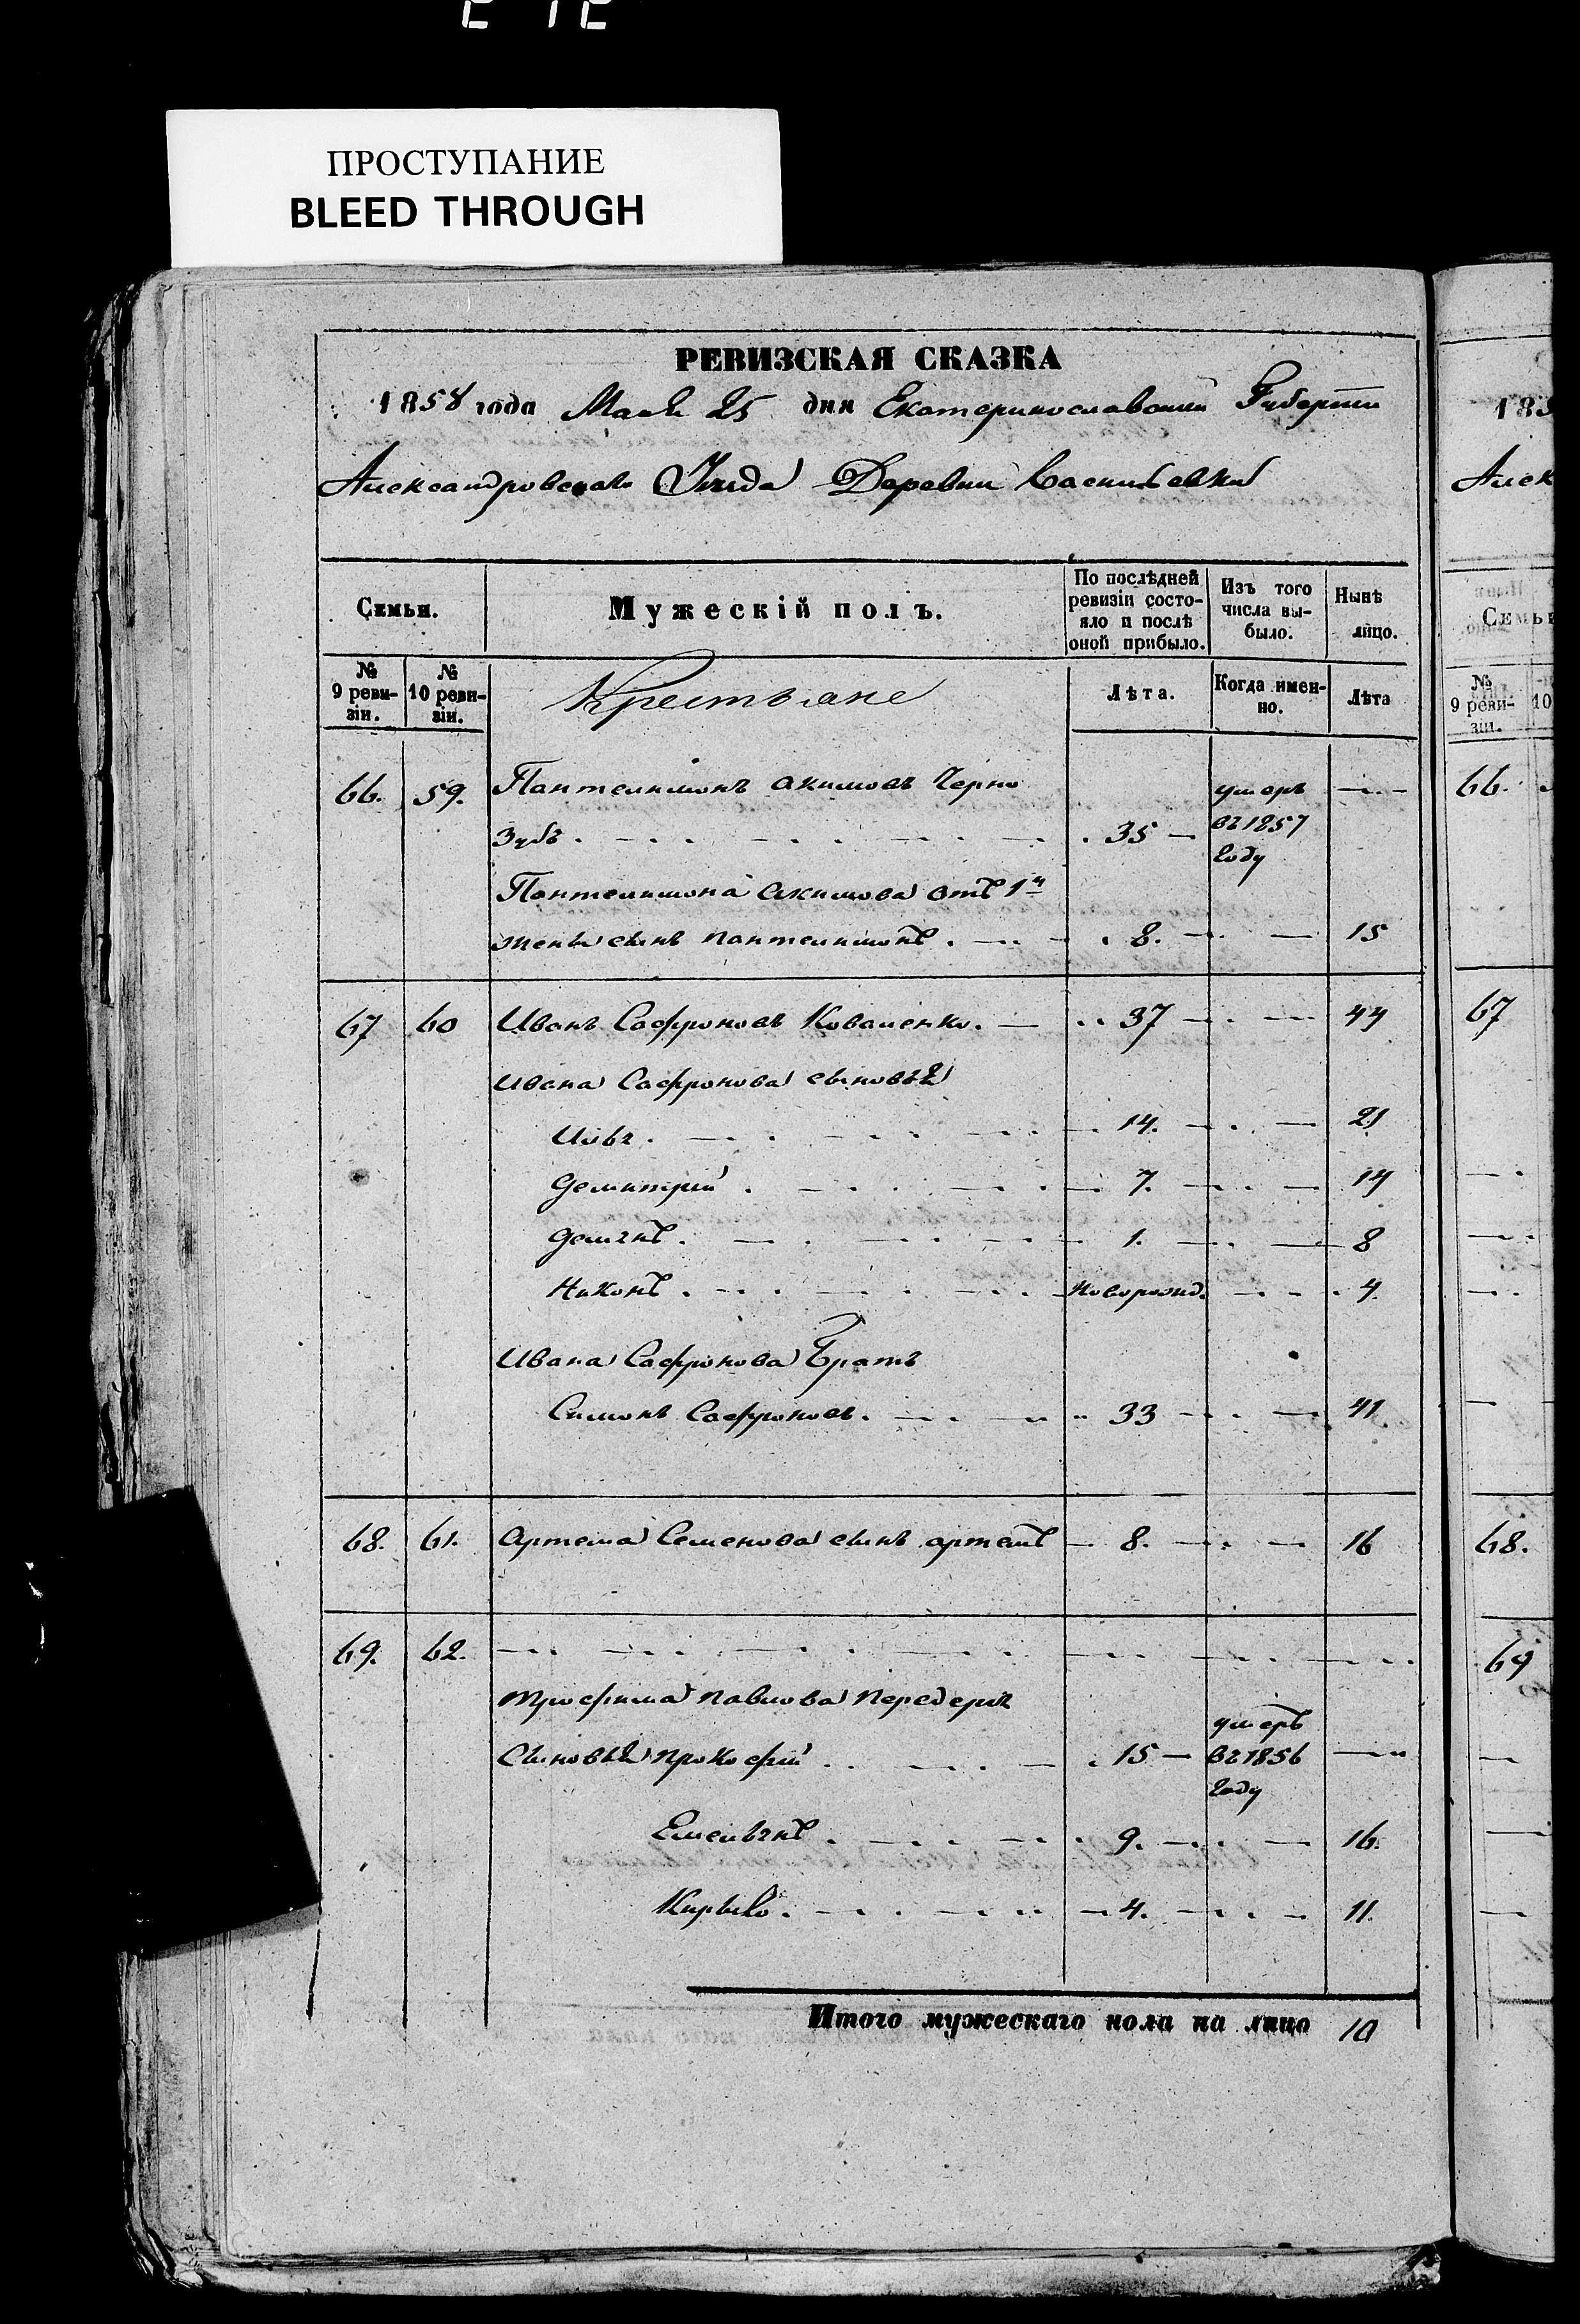 ПРОСТУПАНИЕ
BLEED THROUGH
РЕВИЗСКАЯ СКАЗКА
1858 года Мая 25 дня Екатеринославской Губернии
Александровскаго Уѣзда Деревни Васильевки
Семьи. Мужескій полъ. По послѣдней ревизіи состояло и послѣ оной прибыло. Изъ того числа выбыло. Нынѣ лицо.
№ 9 ревизіи. № 10 ревизіи. Крестьяне Лѣта. Когда именно. Лѣта
66. 59. Пантелимонъ Акимовъ Черно
зубъ 35 умеръ въ 1857 году
Пантелимона Акимова отъ 1й
жены сынъ Пантелимонъ 8. 15
67 60 Иванъ Сафроновъ Коваленко. 37 44
Ивана Сафронова сыновья
Иовъ. 14. 21
Демитрій 7. 14
Демянъ. 1. 8
Никонъ новорожд. 4.
Ивана Сафронова Братъ
Симонъ Сафроновъ. 33 41
68. 61. Артема Семенова сынъ Артемъ 8. 16
69. 62.
Трофима Павлова Передерія
Сыновья Прокофій 15 умеръ въ 1856 году
Емельянъ 9. 16.
Кирыло. 4. 11.
Итого мужескаго пола на лицо 10
183
Алек
Семьи
№ 9 ревизіи. 10
66.
67
68.
69